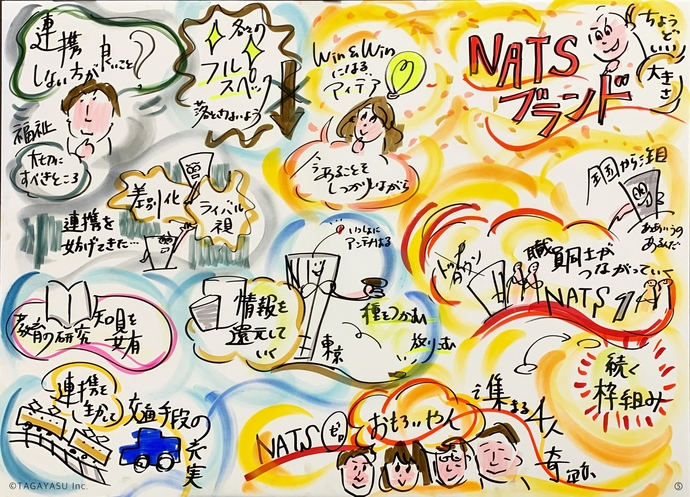 連携
しない方が
良いこと
?
福祉
大切に
すべきところ
各々の
フルスペック
落ときないよう
Win&Win
になる
アイデア
今
あることを
しっかりしながら
NATS
ブランド
ちょうど
いい
大きさ
差別化
ライバル
視
連携を
妨げてきた…
周囲から注目
ああいうの
あるんだ
職員同士が
つながっていく
NATS
トップダウン
いっしょに
アンテナはる
種をつかむ
放り込む
東京
情報を
還元して
いく
教育の研究
知見を
共有
続く
枠組み
連携を
生かして
交通手段の
充実
NATS
おもろいやん
集まる4人
奇跡
©TAGAYASU Inc.
⑤